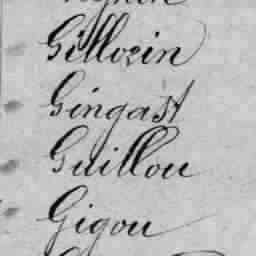 Gillozin
Gingast
Guillou
Gigou